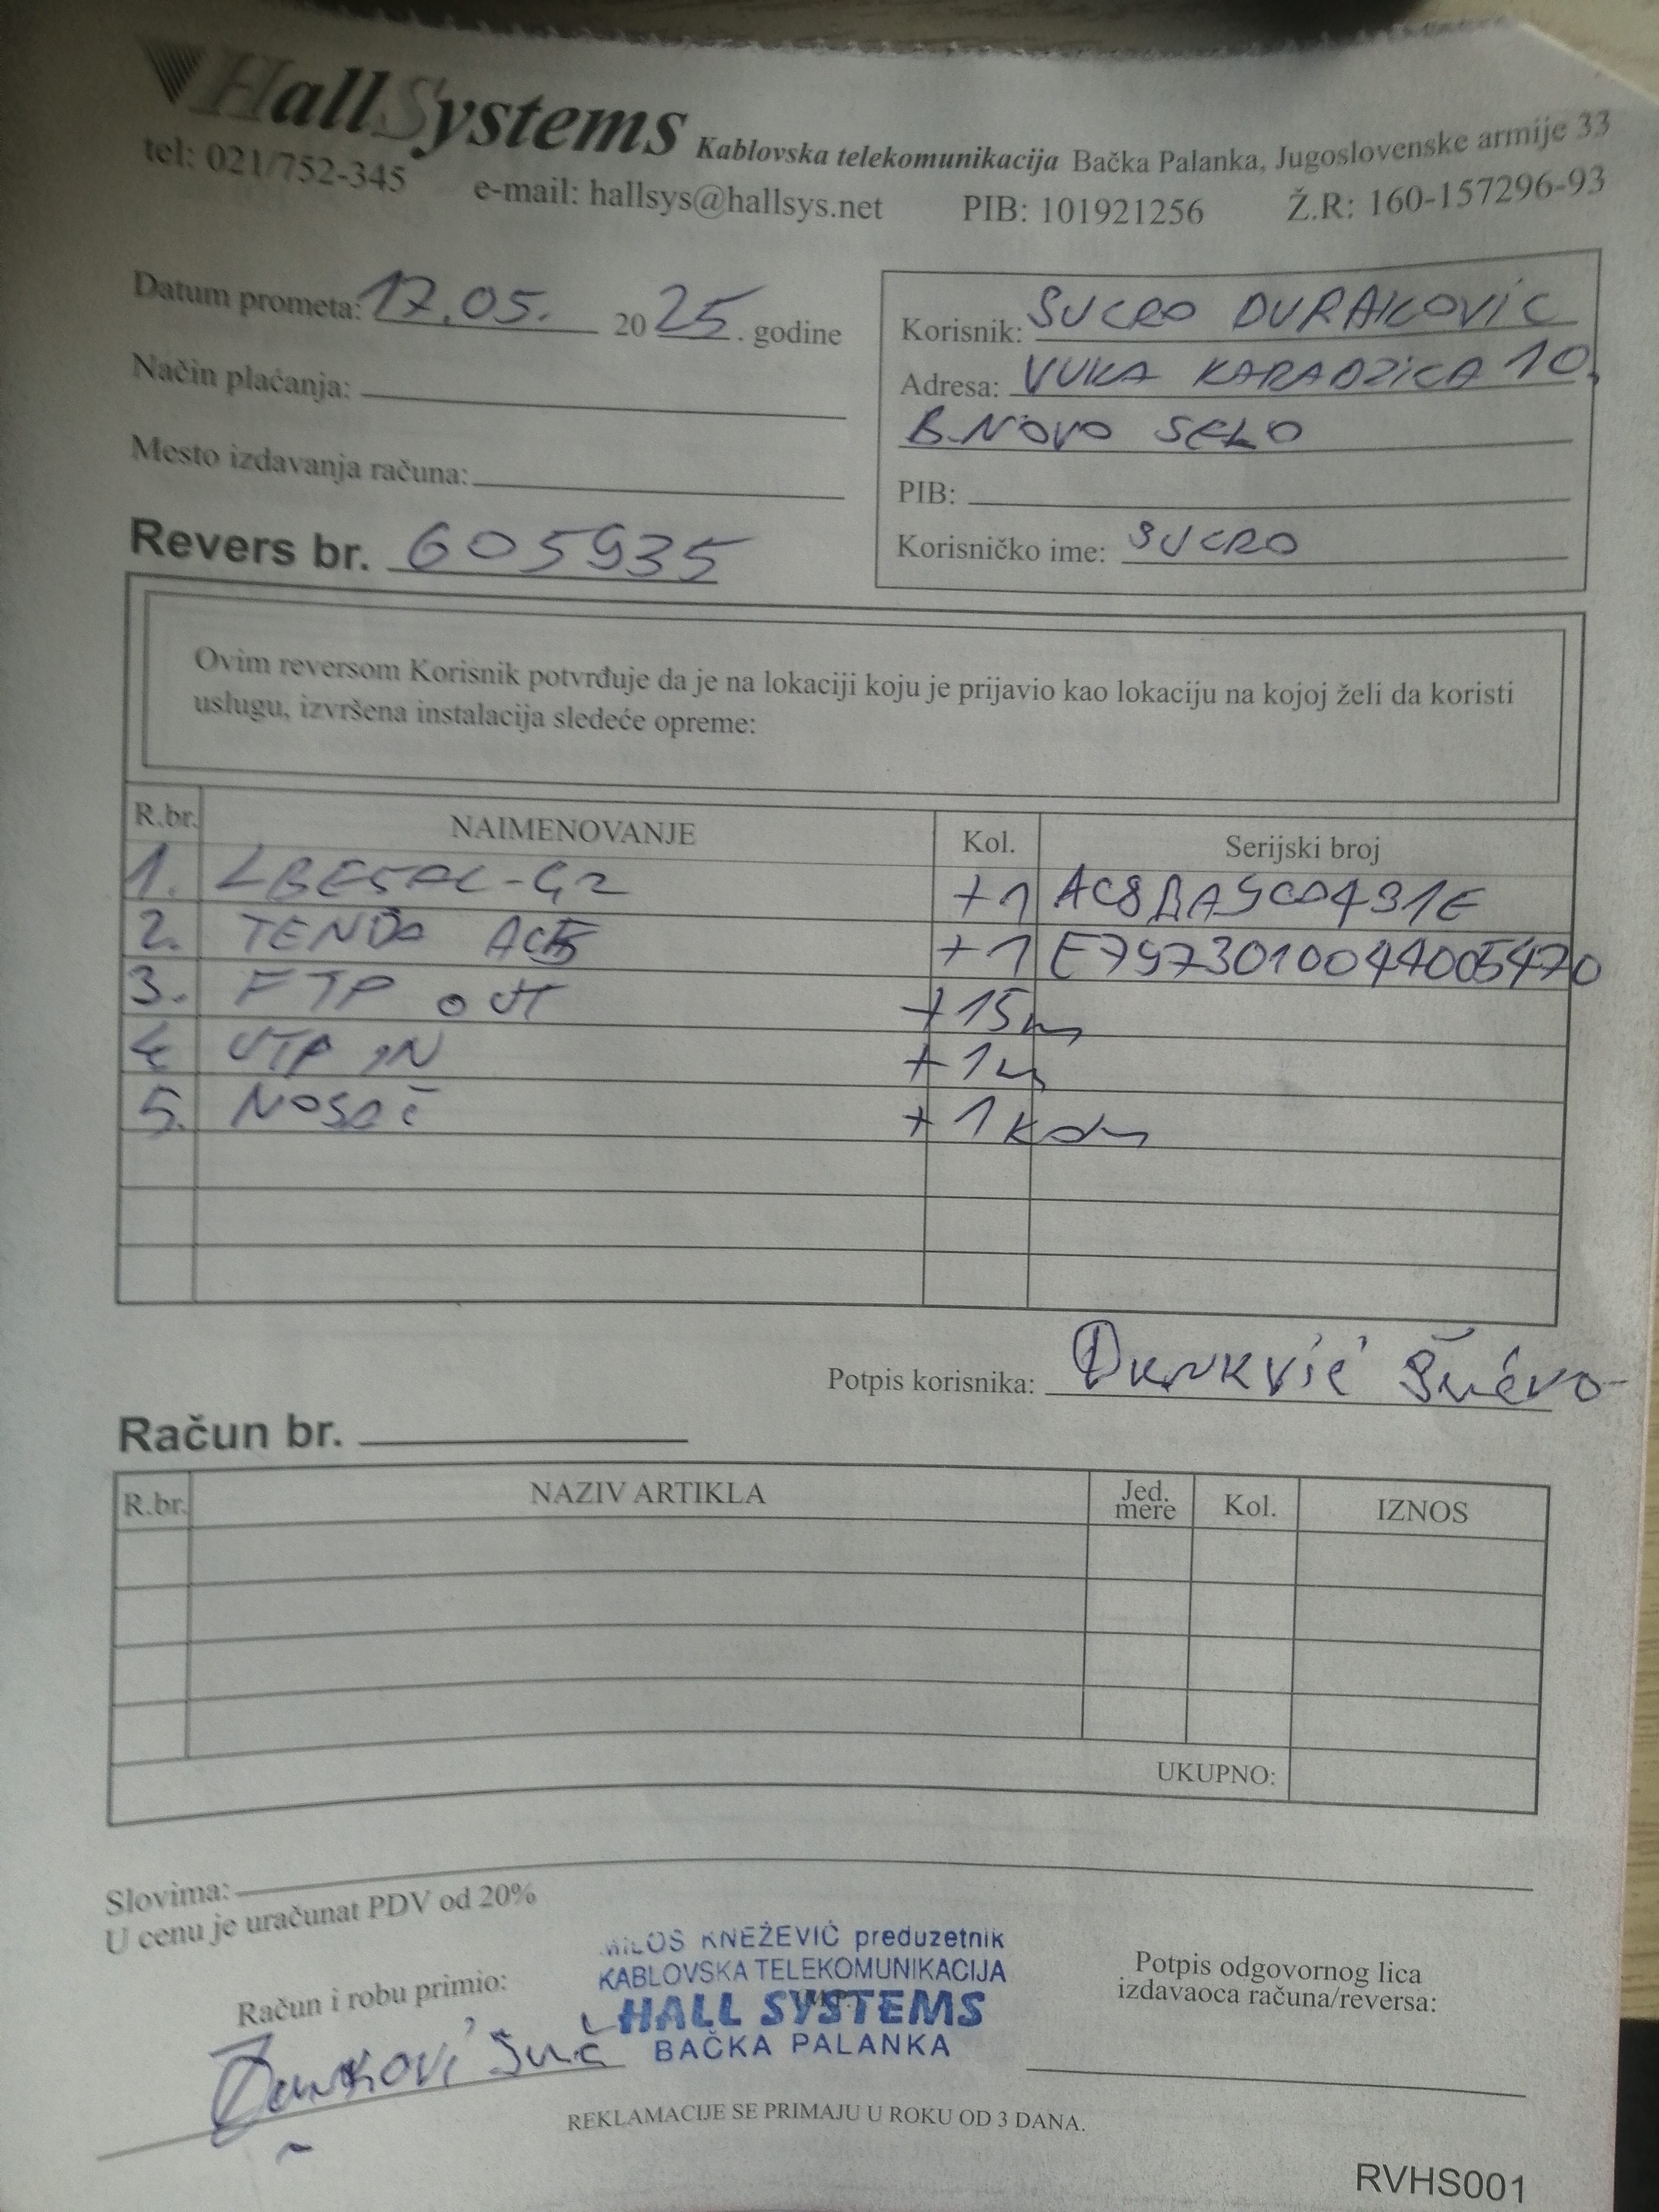 HallSystems Kablovska telekomunikacija Bačka Palanka, Jugoslovenske armije 33
tel: 021/752-345 e-mail: hallsys@hallsys.net PIB: 101921256 Ž.R: 160-157296-93
Datum prometa: 17.05. 2025. godine
Način plaćanja:
Mesto izdavanja računa:
Revers br. 605935
Korisnik: SUCRO DURAKOVIC
Adresa: VUKA KARADZICA 10.
B.NOVO SELO
PIB:
Korisničko ime: SUCRO
Ovim reversom Korisnik potvrđuje da je na lokaciji koju je prijavio kao lokaciju na kojoj želi da koristi
uslugu, izvršena instalacija sledeće opreme:
R.br. NAIMENOVANJE Kol. Serijski broj
1. LBE5AC-G2 +1
2. TENDA AC5 +1
3. FTP OUT +15m
4. UTP IN +1m
5. NOSAČ +1 kom
Potpis korisnika:
Račun br.
R.br. NAZIV ARTIKLA Jed. mere Kol. IZNOS
UKUPNO:
Slovima:
U cenu je uračunat PDV od 20%
Račun i robu primio:
MILOŠ KNEŽEVIĆ preduzetnik
KABLOVSKA TELEKOMUNIKACIJA
HALL SYSTEMS
BAČKA PALANKA
Potpis odgovornog lica
izdavaoca računa/reversa:
REKLAMACIJE SE PRIMAJU U ROKU OD 3 DANA.
RVHS001